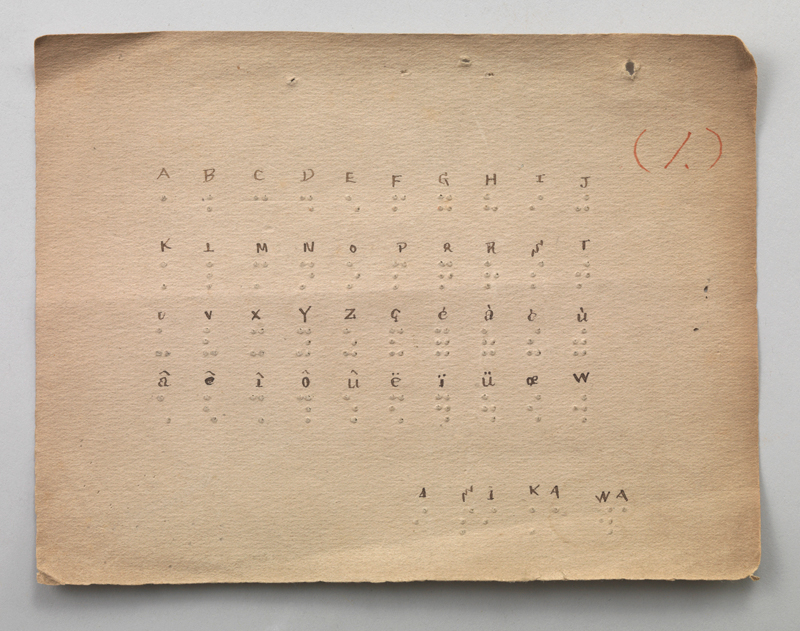 (1.)
A B C D E F G H I J
K L M N O P Q R S T
U V X Y Z Ç é à è ù
â ê î ô û ë ï ü œ W
KA WA